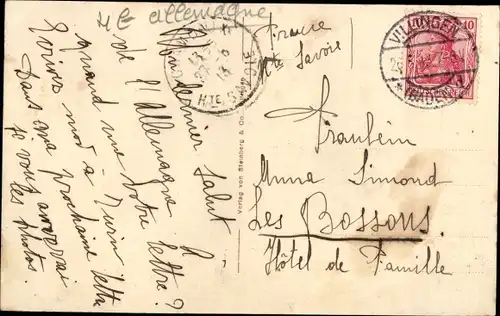 4E allemagne
Mon dernier Salut
de l'Allemagne. A
quand une Votre lettre?
Ecrivez moi à Turin
Dans ma prochaine lettre
je vous enverrai
les photos.
H.TE S
Verlag von Steinberg & Co.
France
Hte Savoie
Fräulein
Anna Simond
Les Bossons.
Hôtel de Famille
VILLINGEN
(BADEN)
10